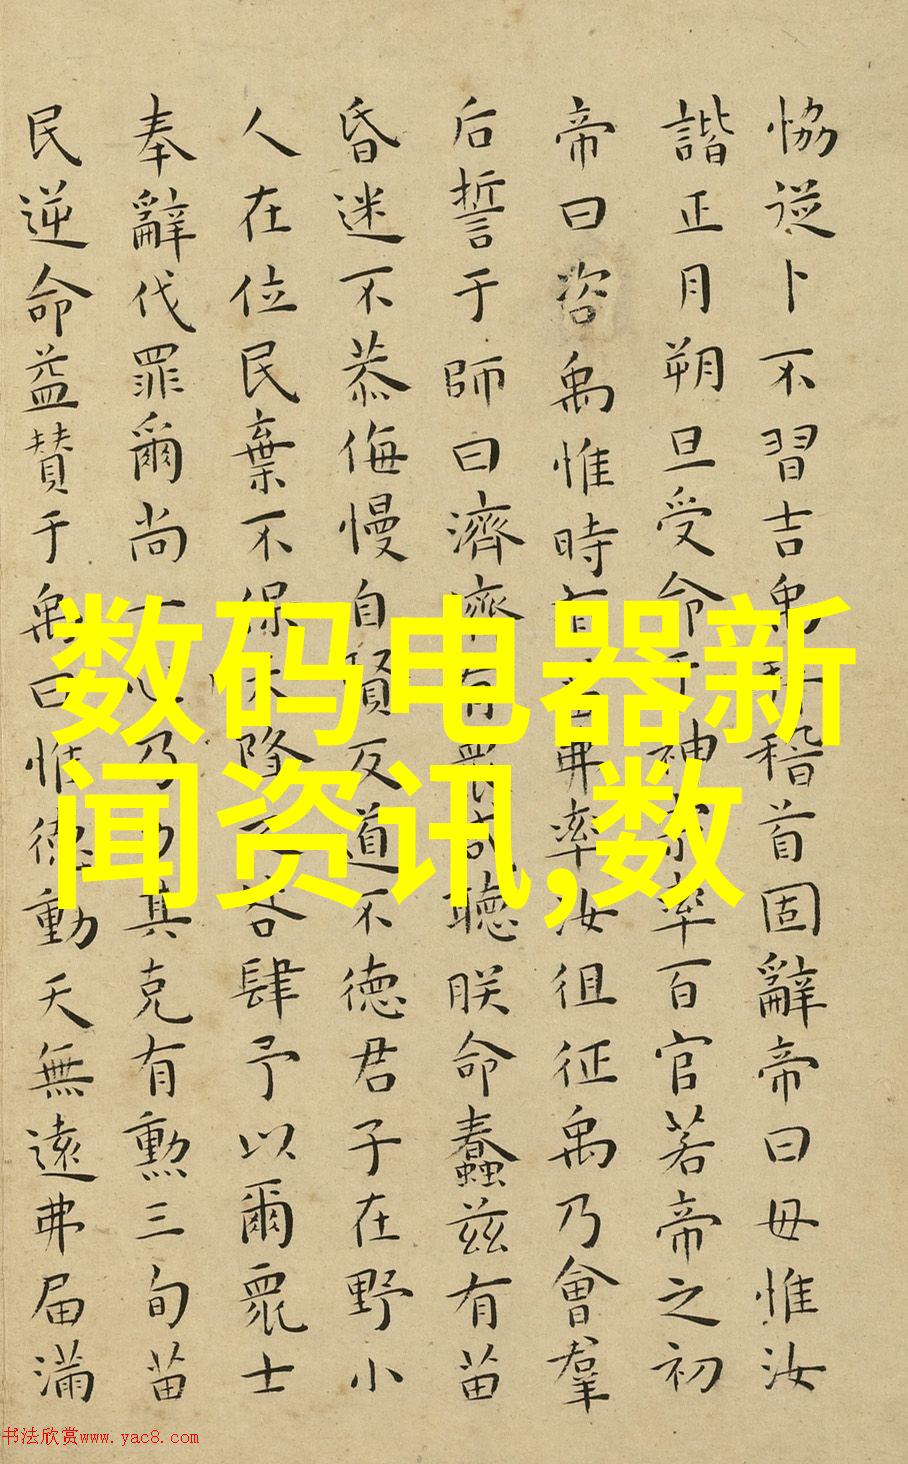 恊從卜不習吉禹拜稽首固辭帝曰毋惟汝
諧正月朔旦受命于神宗率百官若帝之初
帝曰咨禹惟時有苗弗率汝徂征禹乃會羣
后誓于師曰濟濟有衆咸聽朕命蠢兹有苗
昏迷不恭侮慢自賢反道不德君子在野小
人在位民棄不保天降之咎肆予以爾眾士
奉辭伐罪爾尚一心乃力其克有勲三旬苗
民逆命益賛于禹曰惟德動天無遠弗届滿
数码电器新
闻资讯,数
书法欣赏www.yac8.com